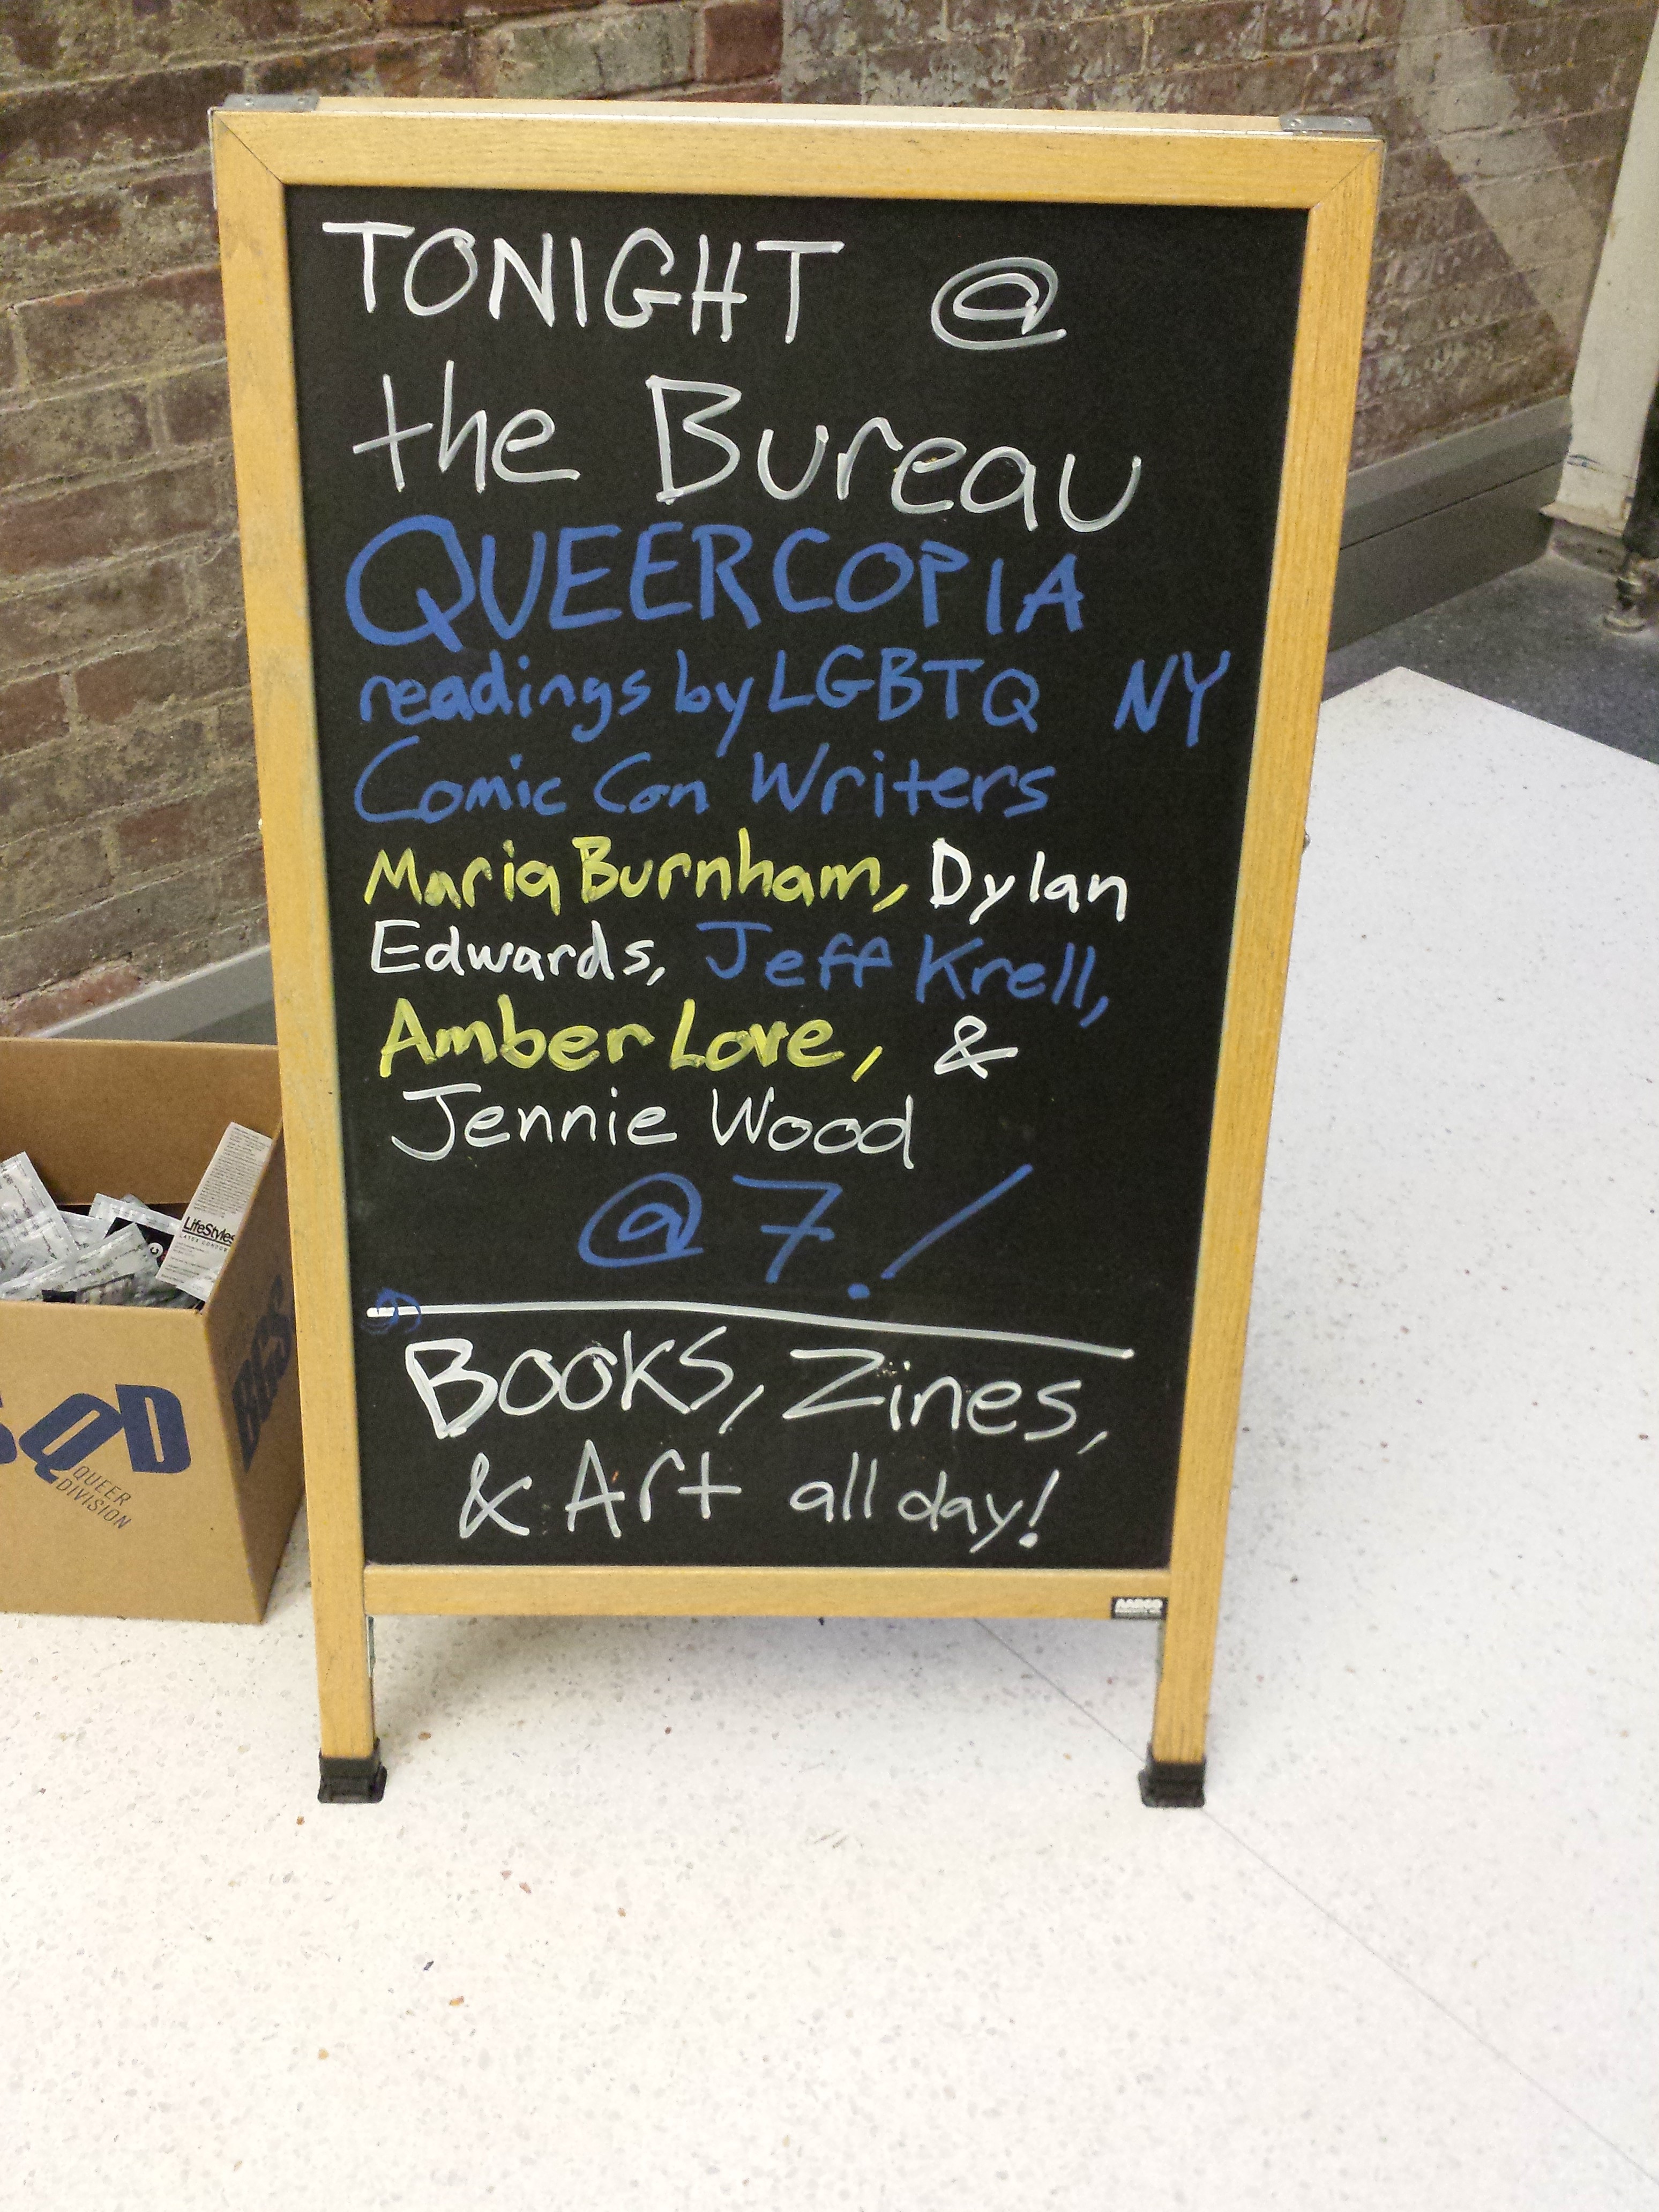 TONIGHT @
the Bureau
QUEERCOPIA
readings by LGBTQ NY
Comic Con Writers
Maria Burnham, Dylan
Edwards, Jeff Krell,
Amber Love, &
Jennie Wood
@ 7!
BOOKS, Zines,
& Art all day!
LifeStyles
QD
QUEER
DIVISION
BGS